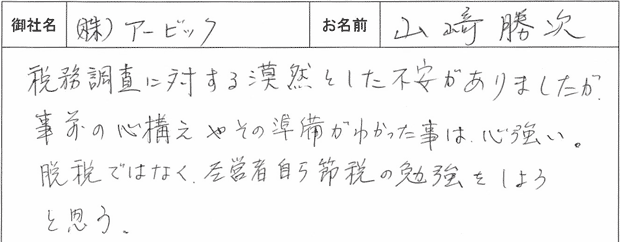 御社名 (株)アービック お名前 山﨑勝次
税務調査に対する漠然とした不安がありましたが、
事前の心構えやその準備がわかった事は、心強い。
脱税ではなく、経営者自ら節税の勉強をしよう
と思う。